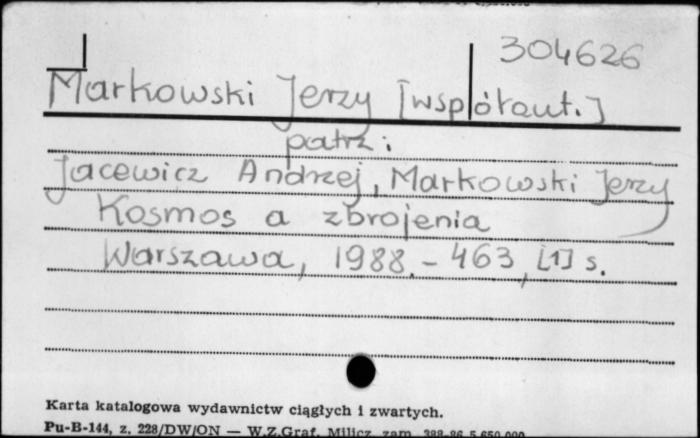 304626
Markowski Jerzy [współaut.]
patrz:
Jacewicz Andrzej, Markowski Jerzy
Kosmos a zbrojenia
Warszawa, 1988. - 463, [1] s.
Karta katalogowa wydawnictw ciągłych i zwartych.
Pu-B-144, z. 228/DW/ON — W.Z.Graf. Milicz, zam. 388-86 5.650.000